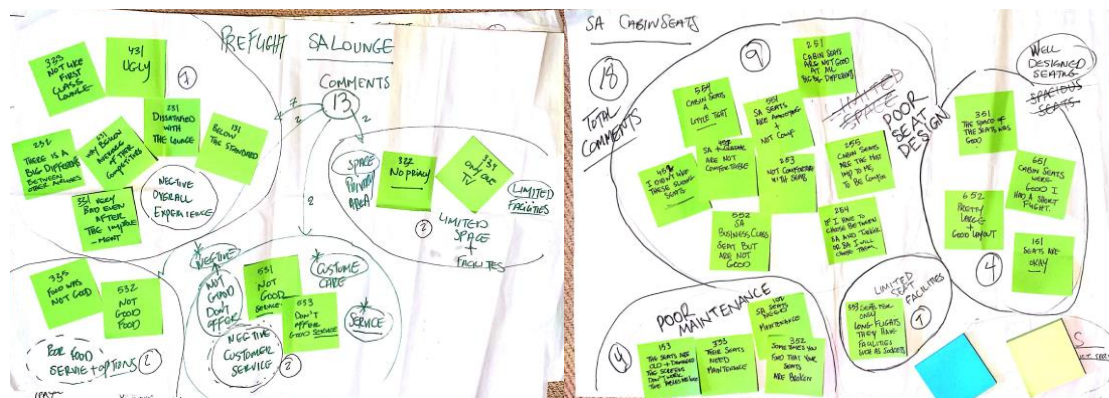 PREFLIGHT SA LOUNGE
COMMENTS
13
7
2
2
2
333
NOT LIKE
FIRST
CLASS
LOUNGE
431
UGLY
7
231
DISSATISFIED
WITH
THE LOUNGE
131
BELOW
THE STANDARD
232
THERE IS A
BIG DIFFERENCE
BETWEEN
OTHER AIRLINES
WAY BELOW
AVERAGE
OF THEIR
COMPETITORS
331 VERY
BAD EVEN
AFTER
THE IMPROVE
-MENT
NEGTIVE
OVERALL
EXPERIENCE
SPACE
PRIVATE
AREA
332
NO PRIVACY
334
ONLY ONE
TV
LIMITED
FACILITIES
2
LIMITED
SPACE
+
FACILITIES
335
FOOD WAS
NOT GOOD
532
NOT
GOOD
FOOD
POOR FOOD
SERVIE + OPTIONS
2
NEGTIVE
NOT
GOOD
DON'T
OFFER
531
NOT
GOOD
SERVICE.
533
DON'T
OFFER
GOOD SERVICE
CUSTOME
CARE
SERVICE
NEGTIVE
CUSTOMER
SERVICE
2
SA CABIN SEATS
18
TOTAL
COMMENTS
9
251
CABIN SEATS
ARE NOT GOOD
AT ALL
BIG BIG DIFFERENT
LIMITED
SPACE
POOR
SEAT
DESIGN
554
CABIN SEATS
A
LITTLE TIGHT
551
SA SEATS
ARE
+
NOT COMF
SA
ARE NOT
COMFORTABLE
I DIDN'T LIKE
THESE
SEATS
253
NOT COMFORTABLE
WITH SEATS
255
CABIN SEATS
ARE THE MOST
IMP TO ME
TO BE COMFIN
552
SA
BUSINESS CLASS
SEAT BUT
ARE NOT
GOOD
254
IF I HAVE TO
CHOOSE BETWEEN
SA AND
OR SA I WILL
CHOOSE
WELL
DESIGNED
SEATING
SPACIOUS
SEATS
351
THE SPACE OF
THE SEATS WAS
GOOD
651
CABIN SEATS
WERE
GOOD I
HAD A SHORT
FLIGHT.
652
PRETTY
LARGE
+
GOOD LAYOUT
151
SEATS ARE
OKAY
4
POOR
MAINTENANCE
4
153
THE SEATS ARE
OLD + DAMAGED
THE SCREENS
DON'T WORK
353
THEIR SEATS
NEED
MAINTENANCE
SA SEATS
MAINTENANCE
352
SOMETIMES YOU
FIND THAT YOUR
SEATS
ARE BROKEN
LIMITED
SEAT
FACILITIES
553
ONLY
LONG FLIGHTS
THEY HAVE
FACILITIES
SUCH AS SOCKETS
1
S